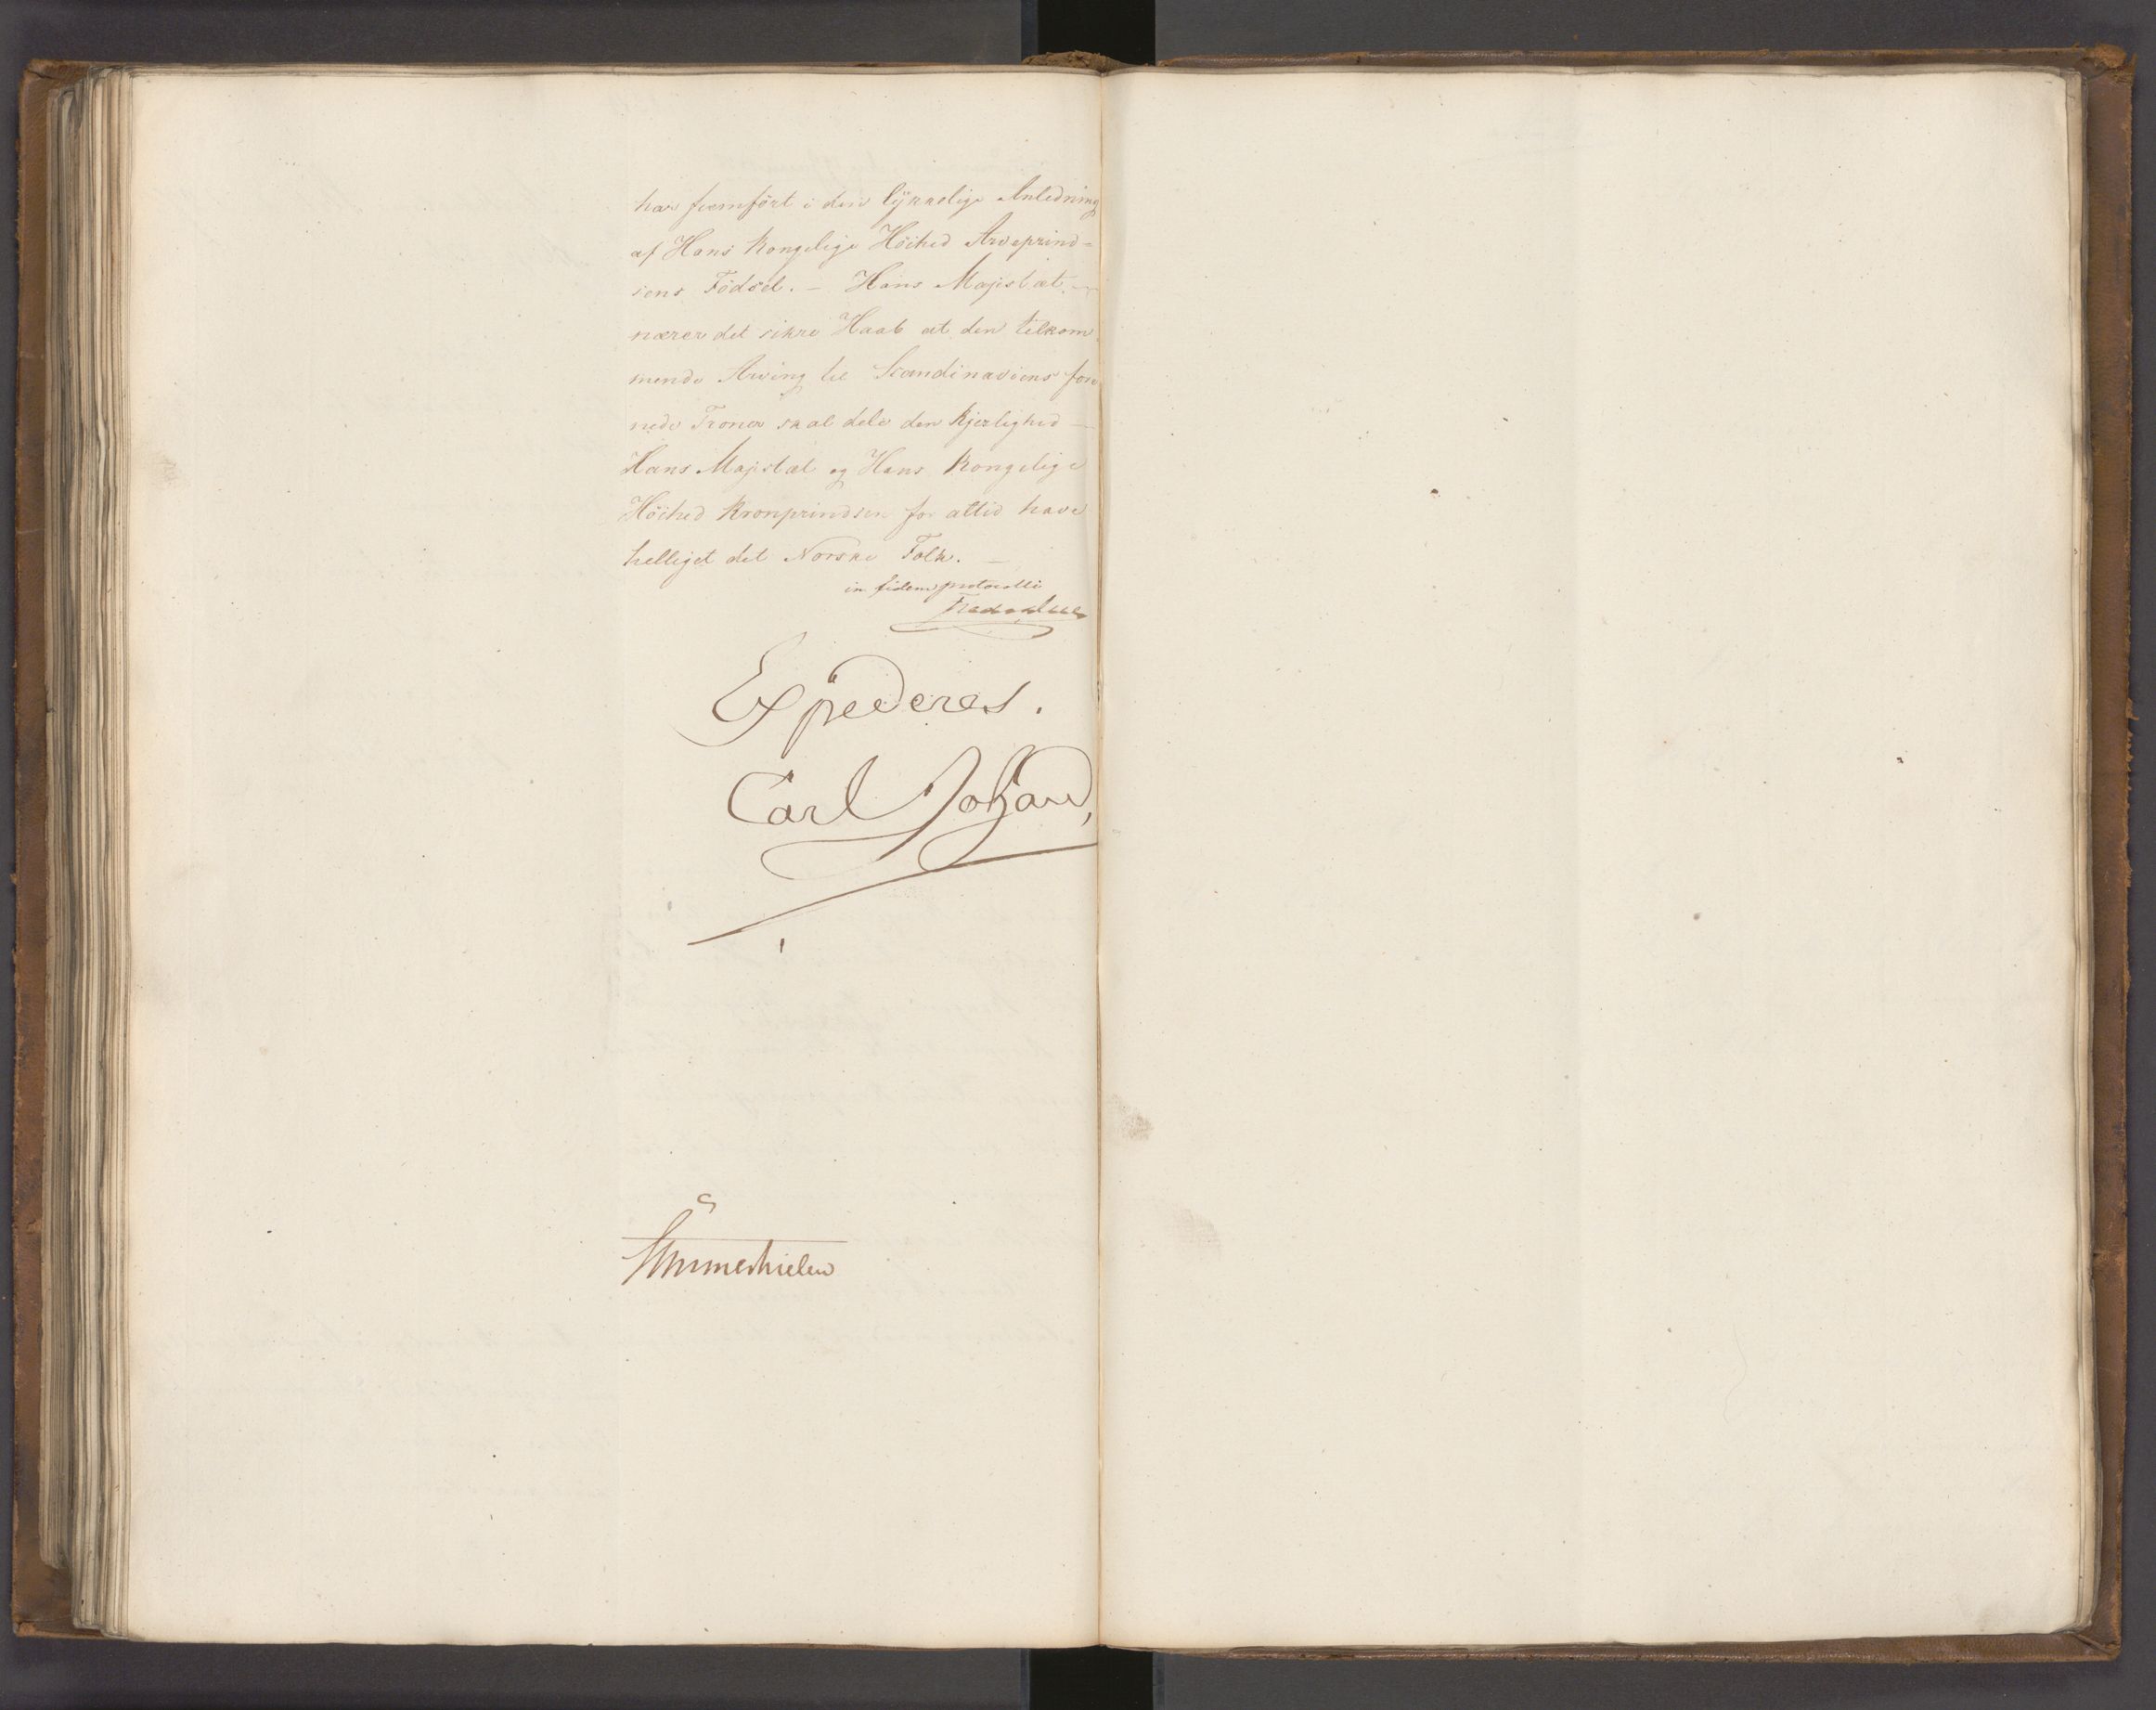 har fremført i den lÿkkelige Anledning
af Hans Kongelige Höihed Arveprind=
sens Födsel. – Hans Majestæt –
nærer det sikre Haab at den tilkom
mende Arving til Scandinaviens fore
nede Troner skal dele den Kjerlighed –
Hans Majestæt og Hans Kongelige
Höihed Kronprindsen for altid have
helliget det Norske Folk. –
in fidem protocolli
Expederes.
Carl Johan